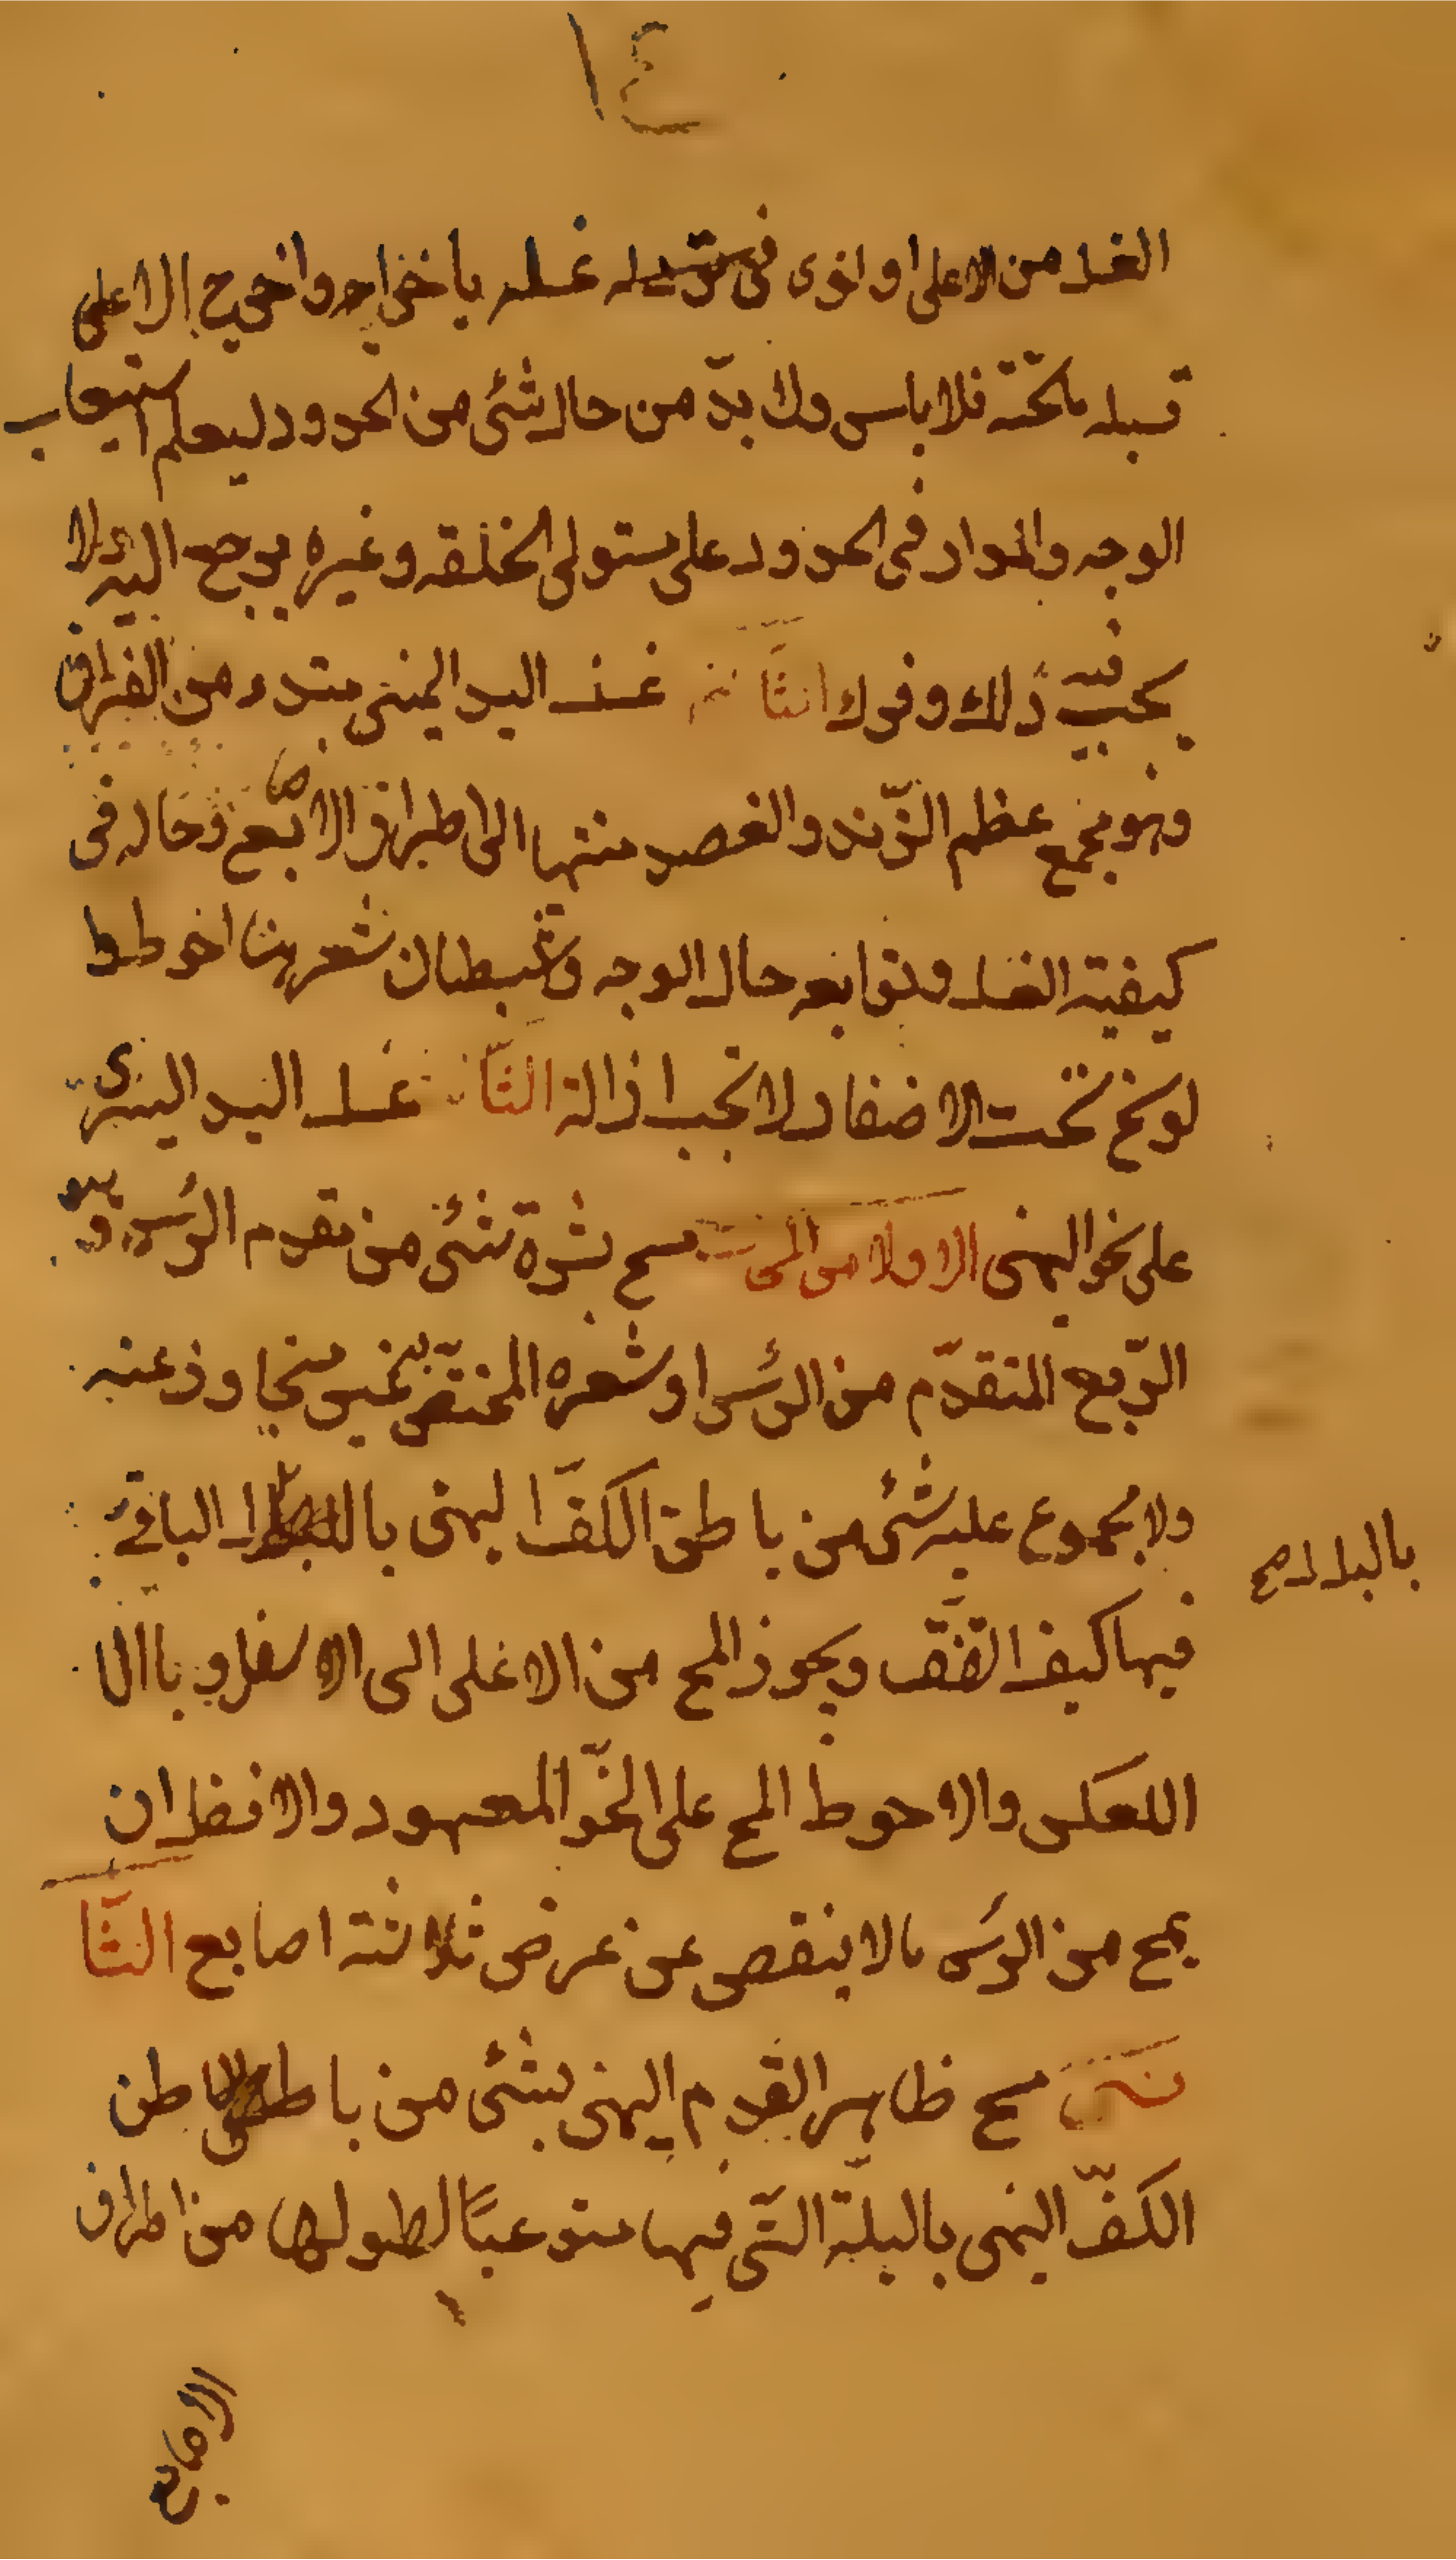 ١٤
الغسل من الاعلى او انوى فى غسله باخراجه واخرج الاعلى
قبله تحته فلا باس ولا بدّ من حال شئ من الحدود ليعلم استيعاب
الوجه والمدار فى الحدود على مستوى الخلقه وغيره يرجع اليه ولا
يجب فيه ذلك وفوك الثّا نى غسل اليد اليمنى مبتدء من المرافق
وهو مجمع عظم الزّند والعضد منتها الى اطراف الاصابع وحاله فى
كيفية الغسل وتوابعه حال الوجه وتبطان شعر هنا احوط
لوسخ تحت الاضفار لا تجب ازالة الثّا غسل اليد اليسرى
على نحو اليمنى الاولا من المسح مسح بشرة شئ من مقدم الرئس وهو
الرّبع المتقدّم من الرئس او شعره المختصّ بغير متجاوز عنه
ولا مجموع عليه شئ من باطن الكفّ اليمنى بالبلل الباقى
بالبلل صح
فيها كيف اتّفق ويجوز المسح من الاعلى الى الاسفل وبال
العكس والاحوط المسح على النّحو المعهود والافضل ان
يمسح من الرئس مالا ينقص عن عرض ثلاثة اصابع الثّا
نى مسح ظاهر القدم اليمنى بشئ من باطن
الكفّ اليمنى بالبلّة الّتى فيها مستوعبًا لطولها من اطراف